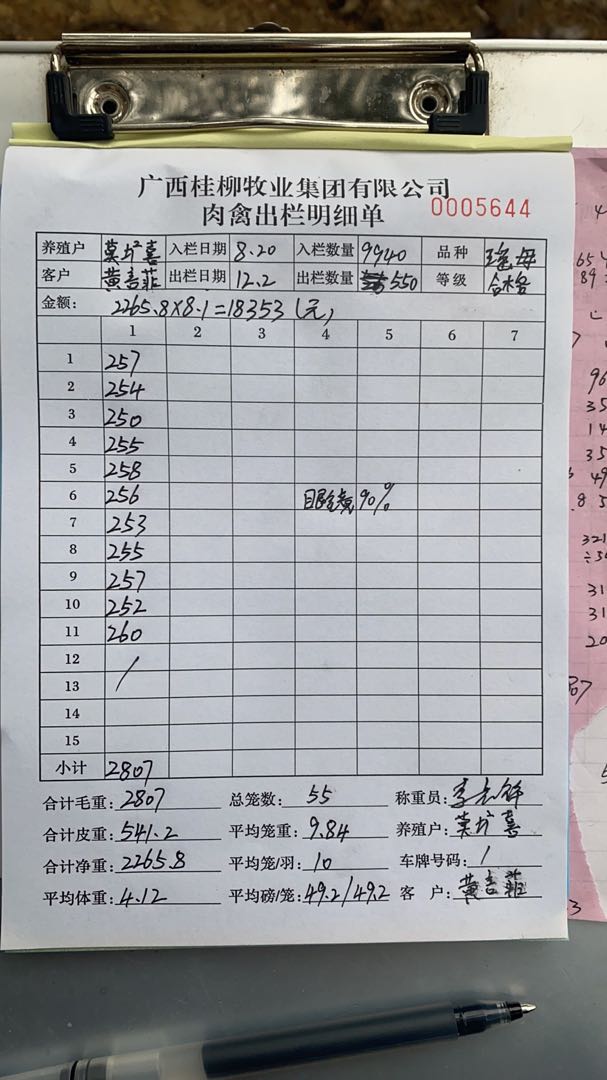 广西桂柳牧业集团有限公司
肉禽出栏明细单 0005644
养殖户 莫扩喜 入栏日期 8.20 入栏数量 9940 品种 瑶母
客户 黄吉菲 出栏日期 12.2 出栏数量 550 等级 合格
金额: 2265.8×8.1=18353(元)
1 2 3 4 5 6 7
1 257
2 254
3 250
4 255
5 258
6 256 90%
7 253
8 255
9 257
10 252
11 260
12 /
13
14
15
小计 2807
合计毛重: 2807 总笼数: 55 称重员:
合计皮重: 541.2 平均笼重: 9.84 养殖户: 莫扩喜
合计净重: 2265.8 平均笼/羽: 10 车牌号码: /
平均体重: 4.12 平均磅/笼: 49.2/49.2 客户: 黄吉菲